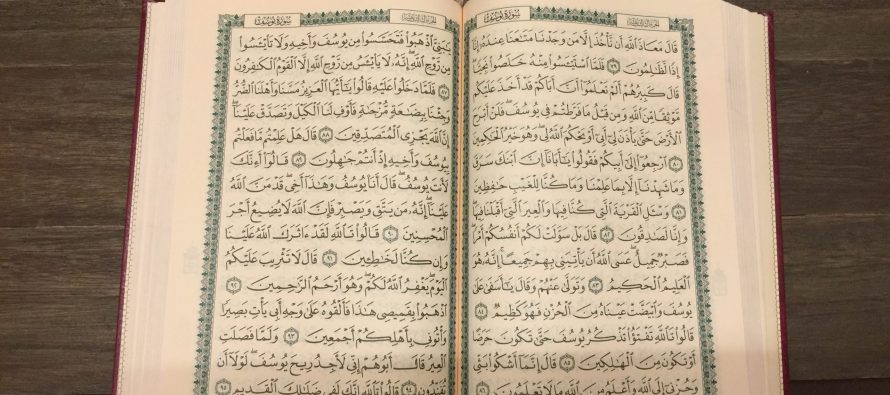 الجزء الثالث عشر سورة يوسف
قَالَ مَعَاذَ ٱللَّهِ أَن نَّأۡخُذَ إِلَّا مَن وَجَدۡنَا مَتَٰعَنَا عِندَهُۥٓ إِنَّآ
إِذٗا لَّظَٰلِمُونَ ٧٩ فَلَمَّا ٱسۡتَيۡـَٔسُواْ مِنۡهُ خَلَصُواْ نَجِيّٗاۖ
قَالَ كَبِيرُهُمۡ أَلَمۡ تَعۡلَمُوٓاْ أَنَّ أَبَاكُمۡ قَدۡ أَخَذَ عَلَيۡكُم
مَّوۡثِقٗا مِّنَ ٱللَّهِ وَمِن قَبۡلُ مَا فَرَّطتُمۡ فِي يُوسُفَۖ فَلَنۡ أَبۡرَحَ
ٱلۡأَرۡضَ حَتَّىٰ يَأۡذَنَ لِيٓ أَبِيٓ أَوۡ يَحۡكُمَ ٱللَّهُ لِيۖ وَهُوَ خَيۡرُ ٱلۡحَٰكِمِينَ
٨٠ ٱرۡجِعُوٓاْ إِلَىٰٓ أَبِيكُمۡ فَقُولُواْ يَٰٓأَبَانَآ إِنَّ ٱبۡنَكَ سَرَقَ
وَمَا شَهِدۡنَآ إِلَّا بِمَا عَلِمۡنَا وَمَا كُنَّا لِلۡغَيۡبِ حَٰفِظِينَ
٨١ وَسۡـَٔلِ ٱلۡقَرۡيَةَ ٱلَّتِي كُنَّا فِيهَا وَٱلۡعِيرَ ٱلَّتِيٓ أَقۡبَلۡنَا فِيهَاۖ
وَإِنَّا لَصَٰدِقُونَ ٨٢ قَالَ بَلۡ سَوَّلَتۡ لَكُمۡ أَنفُسُكُمۡ أَمۡرٗاۖ
فَصَبۡرٞ جَمِيلٌۖ عَسَى ٱللَّهُ أَن يَأۡتِيَنِي بِهِمۡ جَمِيعًاۚ إِنَّهُۥ هُوَ
ٱلۡعَلِيمُ ٱلۡحَكِيمُ ٨٣ وَتَوَلَّىٰ عَنۡهُمۡ وَقَالَ يَٰٓأَسَفَىٰ عَلَىٰ
يُوسُفَ وَٱبۡيَضَّتۡ عَيۡنَاهُ مِنَ ٱلۡحُزۡنِ فَهُوَ كَظِيمٞ ٨٤
قَالُواْ تَٱللَّهِ تَفۡتَؤُاْ تَذۡكُرُ يُوسُفَ حَتَّىٰ تَكُونَ حَرَضًا
أَوۡ تَكُونَ مِنَ ٱلۡهَٰلِكِينَ ٨٥ قَالَ إِنَّمَآ أَشۡكُواْ بَثِّي
وَحُزۡنِيٓ إِلَى ٱللَّهِ وَأَعۡلَمُ مِنَ ٱللَّهِ مَا لَا تَعۡلَمُونَ ٨٦
الجزء الثالث عشر سورة يوسف
يَٰبَنِيَّ ٱذۡهَبُواْ فَتَحَسَّسُواْ مِن يُوسُفَ وَأَخِيهِ وَلَا تَاْيۡـَٔسُواْ
مِن رَّوۡحِ ٱللَّهِۖ إِنَّهُۥ لَا يَاْيۡـَٔسُ مِن رَّوۡحِ ٱللَّهِ إِلَّا ٱلۡقَوۡمُ ٱلۡكَٰفِرُونَ
٨٧ فَلَمَّا دَخَلُواْ عَلَيۡهِ قَالُواْ يَٰٓأَيُّهَا ٱلۡعَزِيزُ مَسَّنَا وَأَهۡلَنَا ٱلضُّرُّ
وَجِئۡنَا بِبِضَٰعَةٖ مُّزۡجَىٰةٖ فَأَوۡفِ لَنَا ٱلۡكَيۡلَ وَتَصَدَّقۡ عَلَيۡنَآۖ
إِنَّ ٱللَّهَ يَجۡزِي ٱلۡمُتَصَدِّقِينَ ٨٨ قَالَ هَلۡ عَلِمۡتُم مَّا فَعَلۡتُم
بِيُوسُفَ وَأَخِيهِ إِذۡ أَنتُمۡ جَٰهِلُونَ ٨٩ قَالُوٓاْ أَءِنَّكَ
لَأَنتَ يُوسُفُۖ قَالَ أَنَا۠ يُوسُفُ وَهَٰذَآ أَخِيۖ قَدۡ مَنَّ ٱللَّهُ
عَلَيۡنَآۖ إِنَّهُۥ مَن يَتَّقِ وَيَصۡبِرۡ فَإِنَّ ٱللَّهَ لَا يُضِيعُ أَجۡرَ
ٱلۡمُحۡسِنِينَ ٩٠ قَالُواْ تَٱللَّهِ لَقَدۡ ءَاثَرَكَ ٱللَّهُ عَلَيۡنَا
وَإِن كُنَّا لَخَٰطِـِٔينَ ٩١ قَالَ لَا تَثۡرِيبَ عَلَيۡكُمُ
ٱلۡيَوۡمَۖ يَغۡفِرُ ٱللَّهُ لَكُمۡۖ وَهُوَ أَرۡحَمُ ٱلرَّٰحِمِينَ ٩٢
ٱذۡهَبُواْ بِقَمِيصِي هَٰذَا فَأَلۡقُوهُ عَلَىٰ وَجۡهِ أَبِي يَأۡتِ بَصِيرٗا
وَأۡتُونِي بِأَهۡلِكُمۡ أَجۡمَعِينَ ٩٣ وَلَمَّا فَصَلَتِ
ٱلۡعِيرُ قَالَ أَبُوهُمۡ إِنِّي لَأَجِدُ رِيحَ يُوسُفَۖ لَوۡلَآ أَن
تُفَنِّدُونِ ٩٤ قَالُواْ تَٱللَّهِ إِنَّكَ لَفِي ضَلَٰلِكَ ٱلۡقَدِيمِ ٩٥